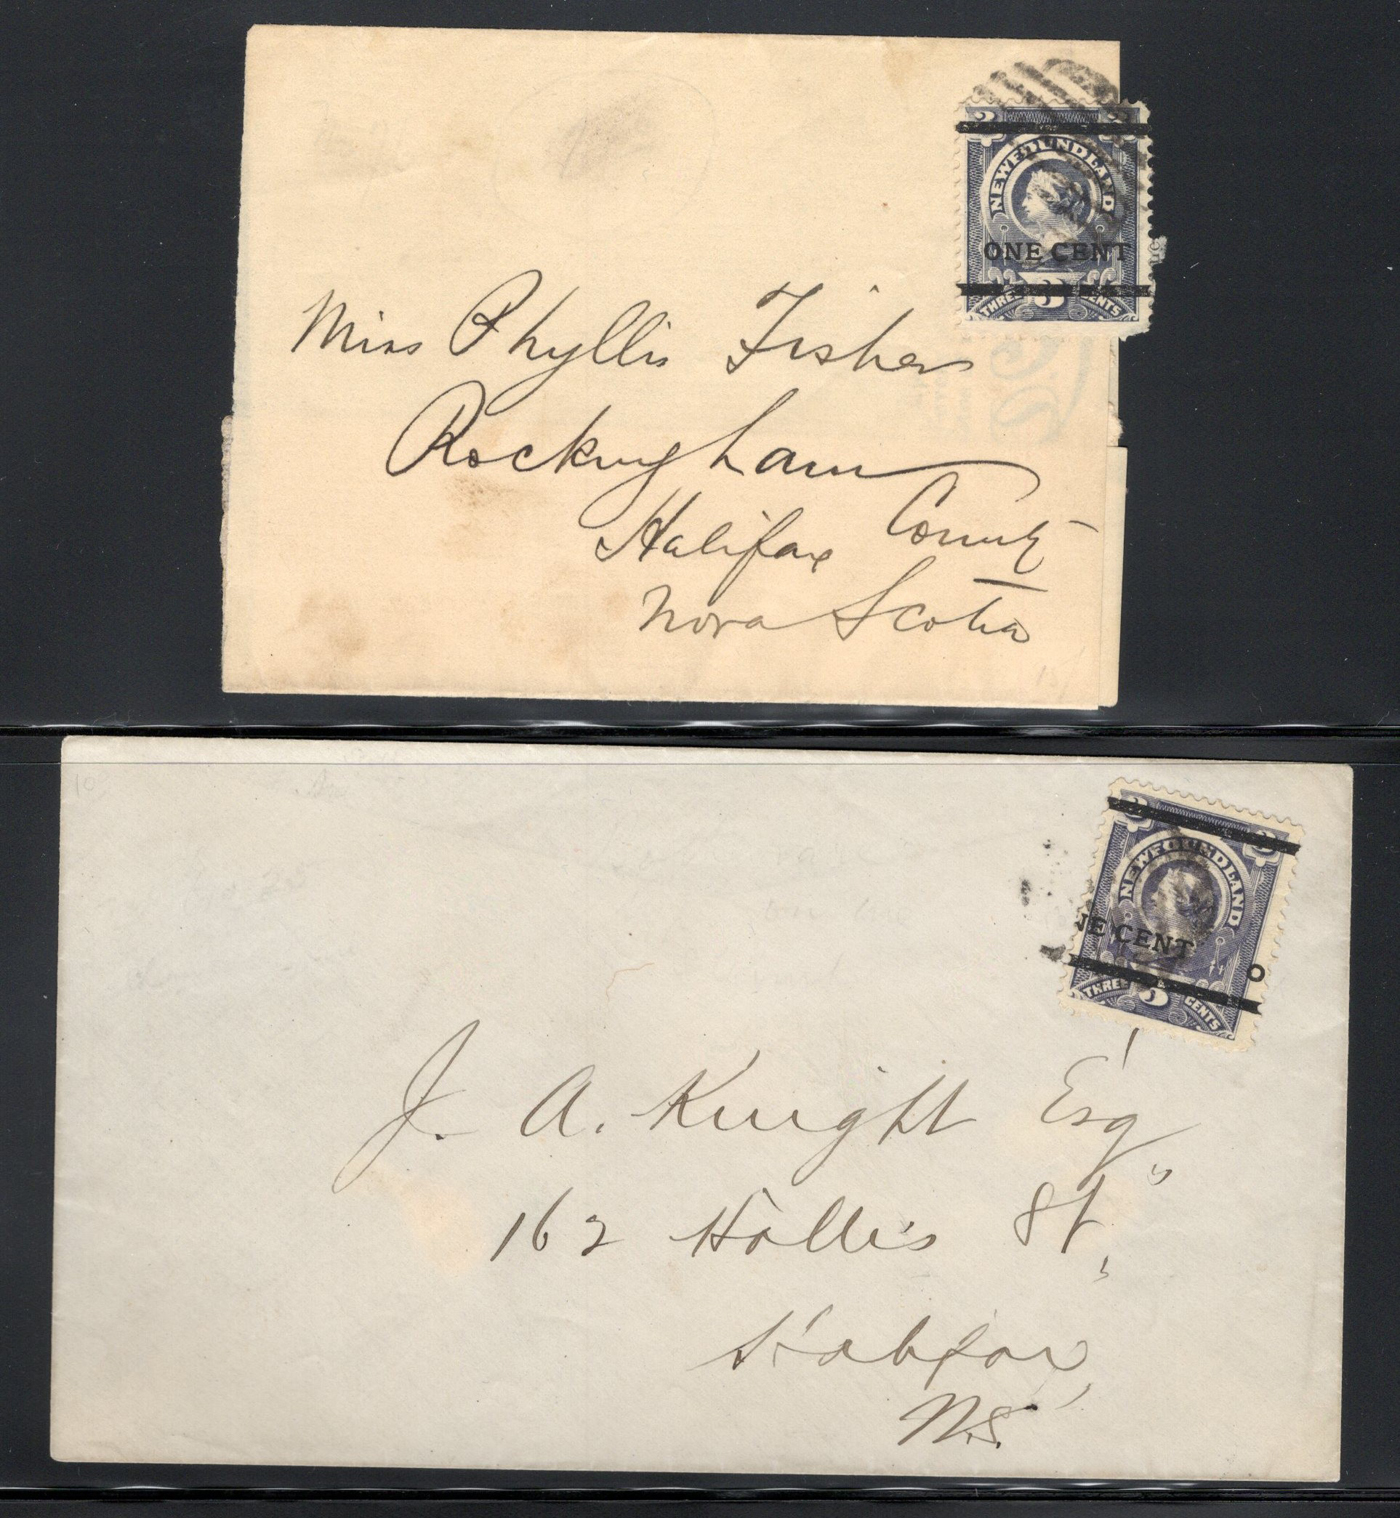 3 3
NEWFOUNDLAND
ONE CENT
THREE 3 CENTS
Miss Phyllis Fisher
Rockingham
Halifax County
Nova Scotia
3 3
NEWFOUNDLAND
NE CENT O
THREE 3 CENTS
J. A. Knight Esq
162 Hollis St,
Halifax,
N.S.